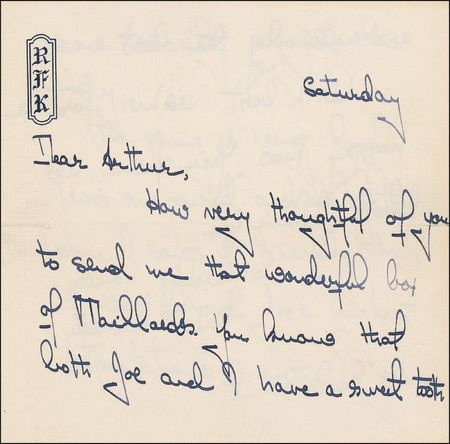 RFK
Saturday
Dear Arthur,
How very thoughtful of you
to send me that wonderful box
of Maillards. You know that
both Joe and I have a sweet tooth